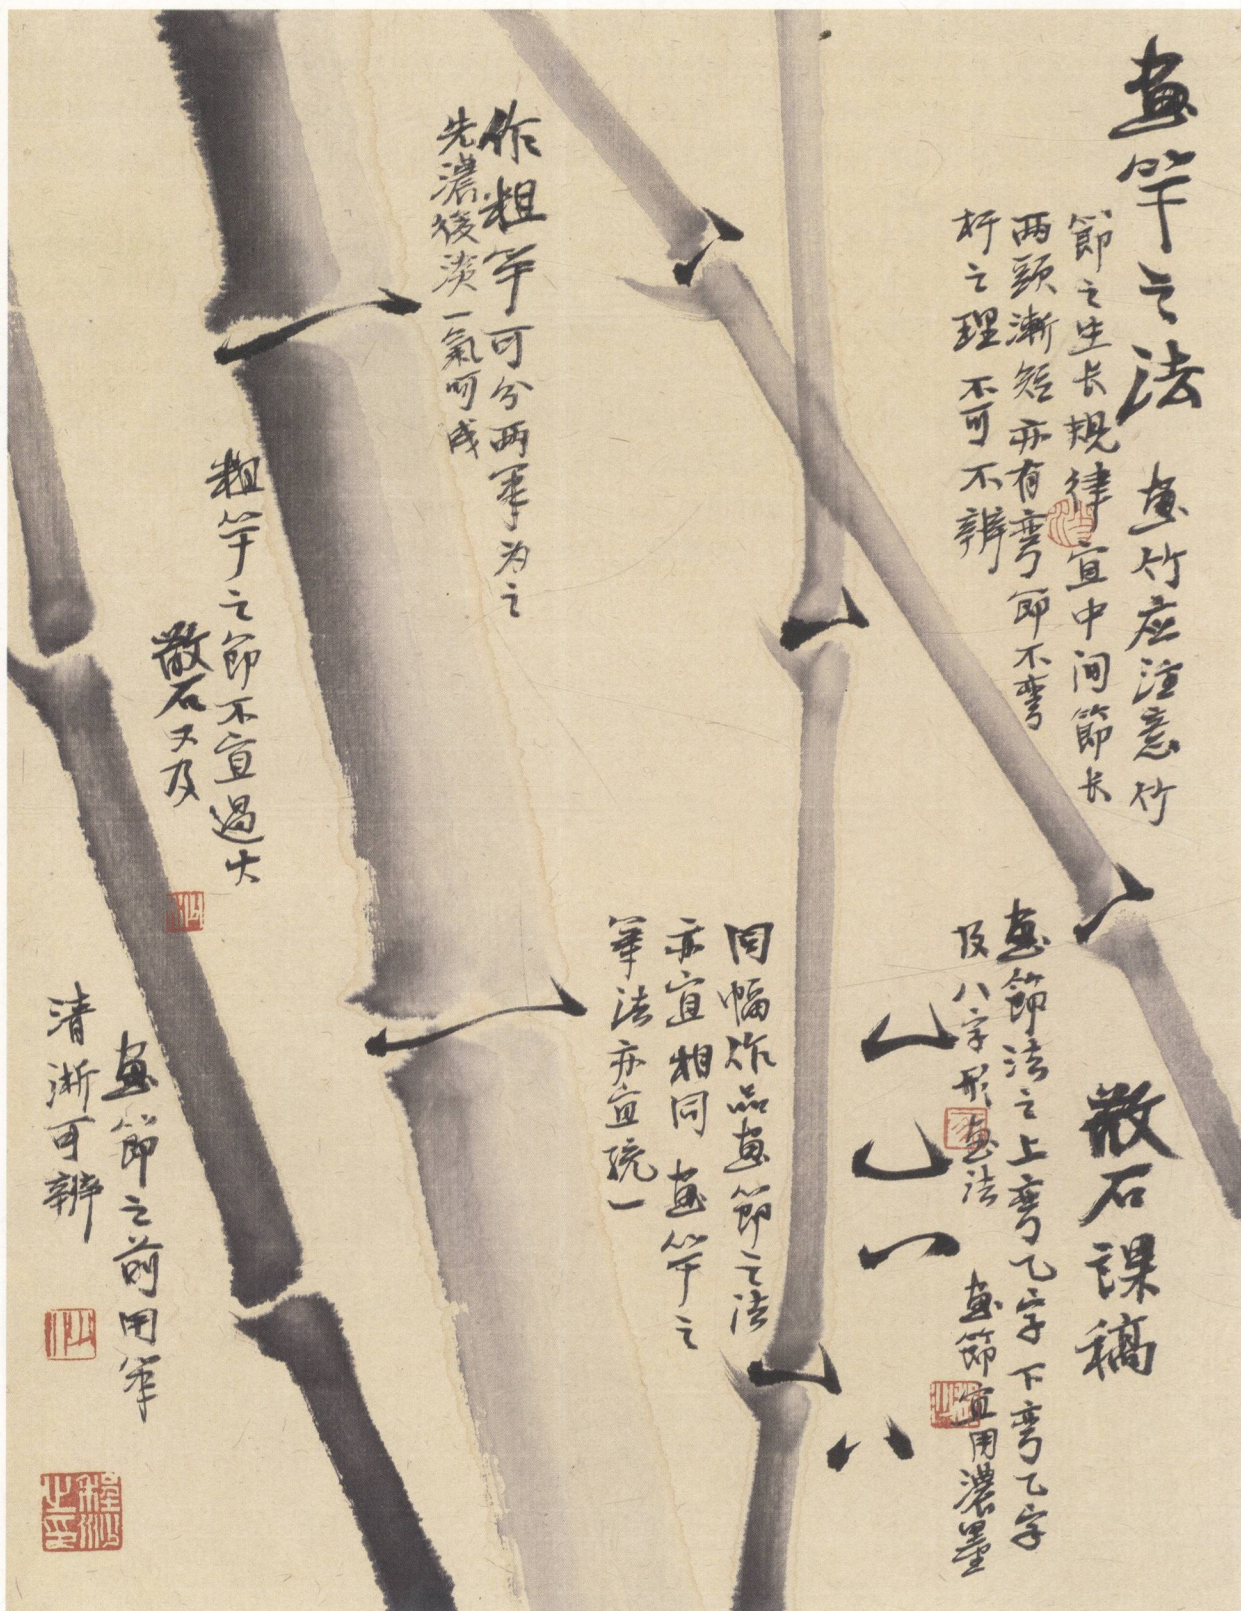 画竿之法
画竹应注意竹
節之生长規律宜中间節长
两頭漸短亦有弯節不弯
杆之理不可不辨
散石課稿
画節法之上弯乙字下弯乙字
及八字形画法
画節宜用濃墨
同幅作品画節之法
亦宜相同画竿之
筆法亦宜統一
作粗竿可分两筆为之
先濃後淡一氣呵成
粗竿之節不宜過大
散石又及
画節之前用筆
清淅可辨